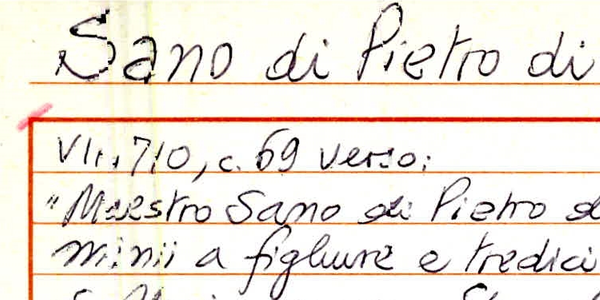 Sano di Pietro di
VII, 710, c. 69 verso:
"Maestro Sano di Pietro d
minii a fighure e tredici